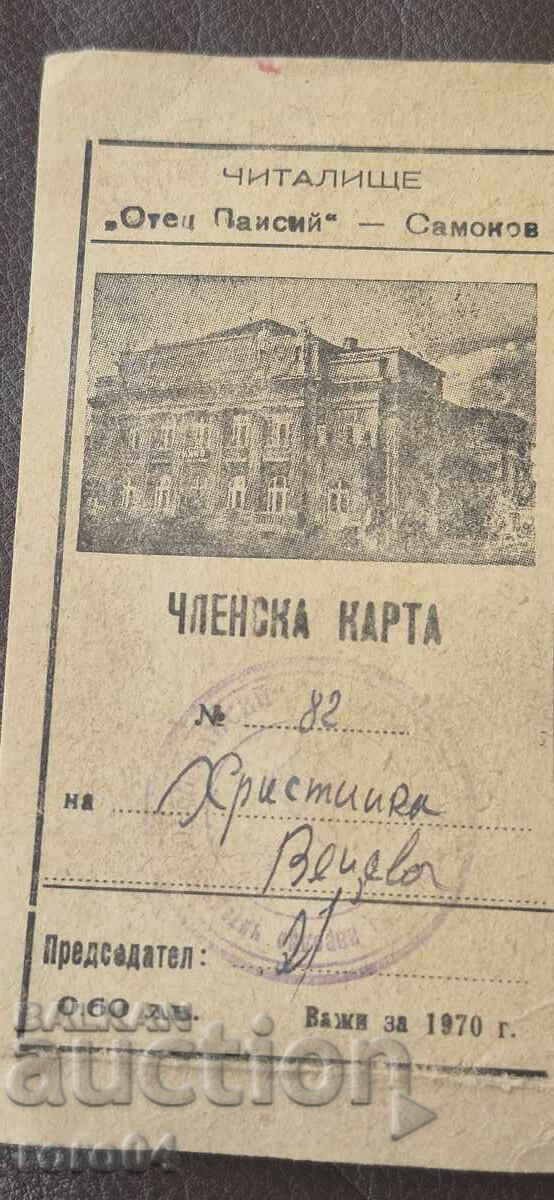 ЧИТАЛИЩЕ
„Отец Паисий“ — Самоков
ЧЛЕНСКА КАРТА
№ 82
на Христинка
Вецева
Председател:
0.60 лв. Важи за 1970 г.
BALKAN
auction
roro04